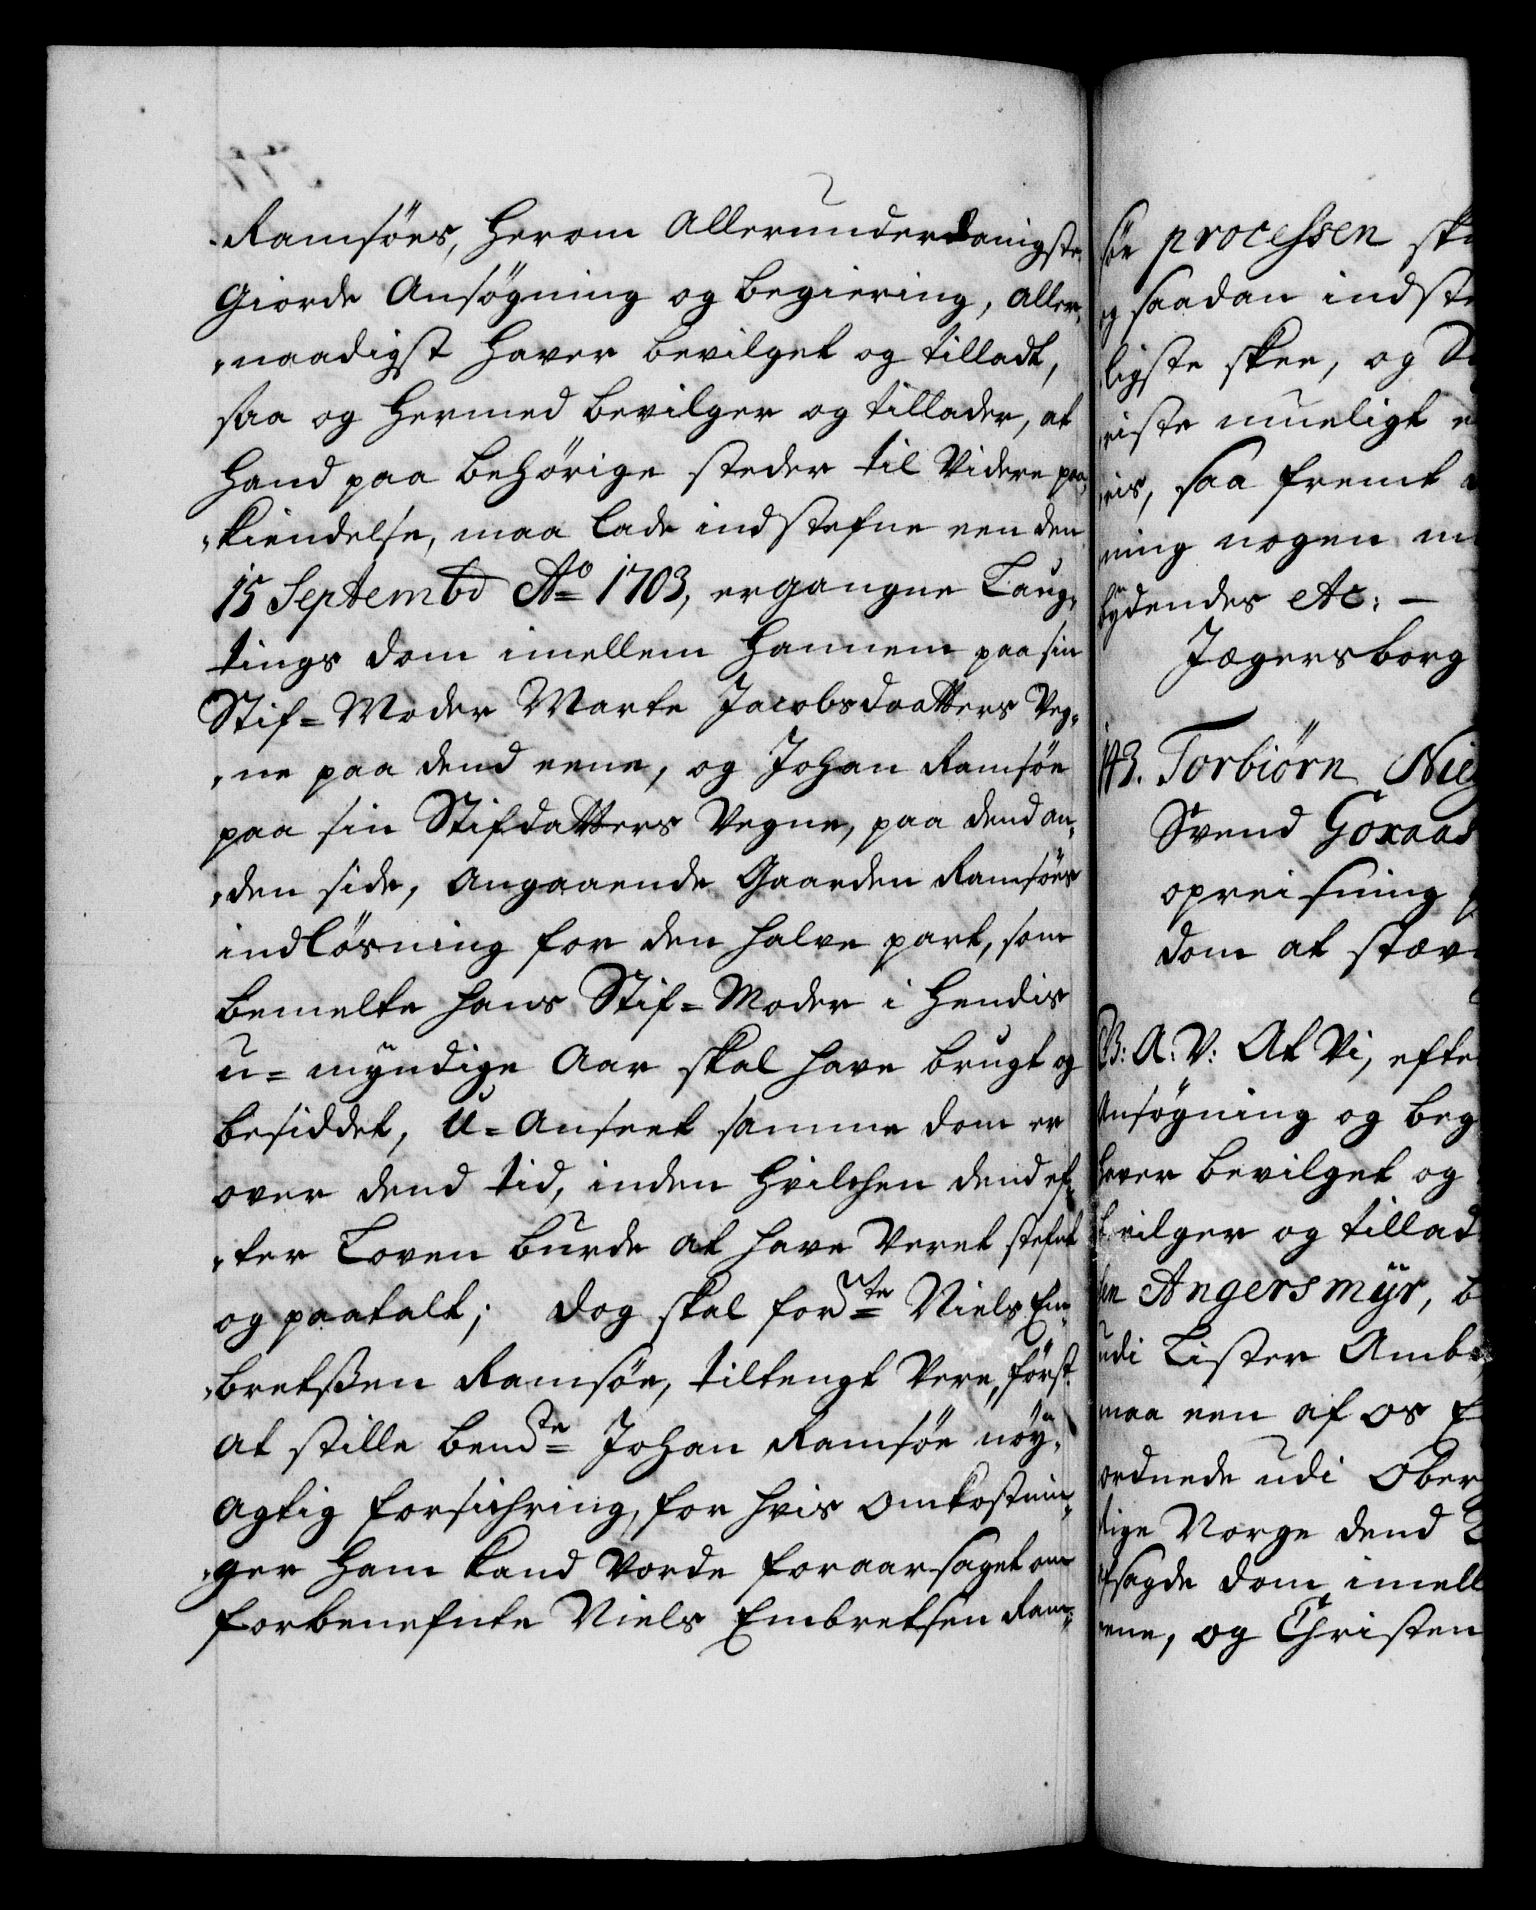 Ramsöes, herom allerunderdanigste
giorde Ansögning og begiering, aller,
,naadigst haver bevilget og tilladt,
saa og hermed bevilger og tillader, at
hand paa behörige steder til Videre paa,
,kiendelse, maa lade indstefne een den
15 Septembr Ao 1703, ergangne Laug,
tings dom imellem hannem paa sin
Stif=Moder Marte Jacobsdaatters Veg,
,ne paa dend eene, og Johan Ramsöe
paa sin Stifdatters Vegne, paa dend an,
,den side, angaaende Gaarden Ramsöes
indlösning for den halve part, som
bemelte hans Stif=Moder i hendis
u=myndige Aar skal have brugt og
besiddet, U=anseet samme dom er
over dend tid, inden hvilchen dend ef,
,ter Loven burde at have Veret stefnt
og paatalt; dog skal fornte Niels Em,
,bretsen Ramsöe, tiltengt Vere, först
at stille bemte Johan Ramsöe nöy,
agtig forsichring, for hvis omkostnin,
,ger ham kand vorde foraarsaget om
forbenefnte Niels Embretsen Ram,
söe processen
og saadan indste
ligste skee, og
mueligt
saa fremt
ning nogen
bydendes etc: —
Jægersborg
Torbiörn
Svend Goraas
opreisning
dom at stæv
B: A: V: At Vi, efter
Ansögning og beg
haver bevilget og
bevilger og tillad
Angersmÿr,
udi Lister Ambt
maa een af os
ordnede udi Ober
Norge dend
afsagde dom imell
eene, og Christen